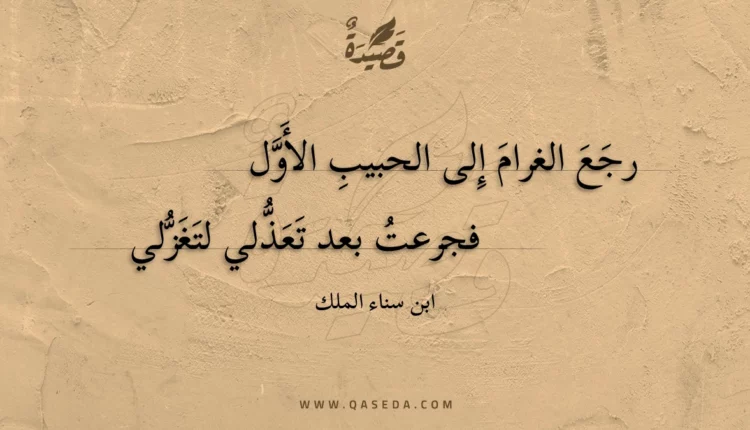 قَصِيْدَةٌ
رجَعَ الغرامَ إِلى الحبيبِ الأَوَّل
فجرعتُ بعد تَعَذُّلي لتَغَزُّلي
ابن سناء الملك
WWW.QASEDA.COM